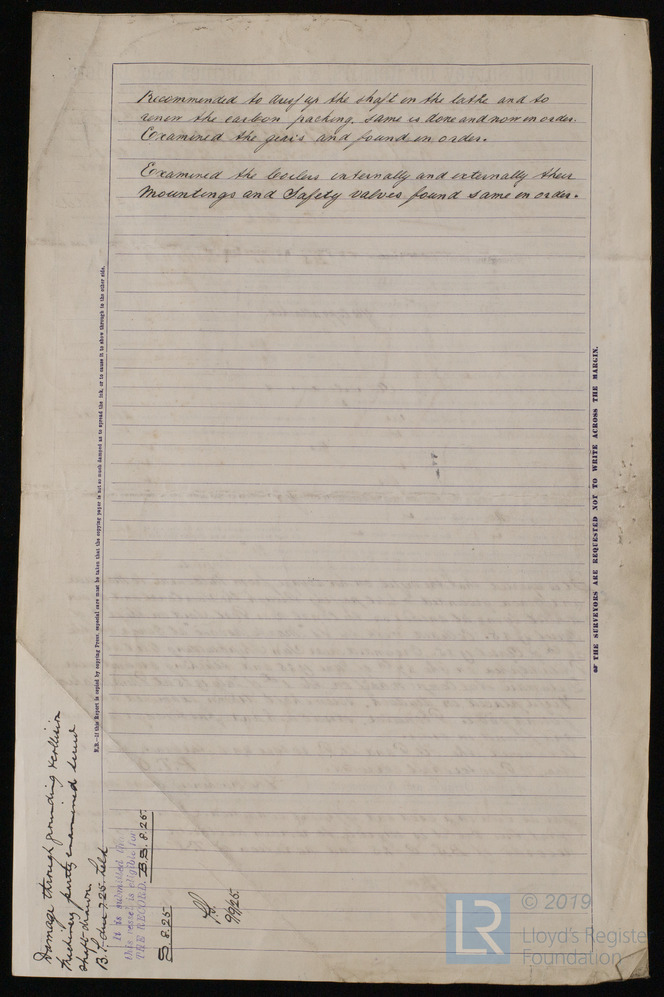 Recommended to dress up the shaft in the lathe and to
renew the carbon packing. Same is done and now in order.
Examined the gears and found in order.
Examined the boilers internally and externally their
Mountings and Safety valves found same in order.
N.B.—If this Report is copied by copying Press, especial care must be taken that the copying paper is not so much damped as to spread the ink, or to cause it to show through to the other side.
THE SURVEYORS ARE REQUESTED NOT TO WRITE ACROSS THE MARGIN.
Damage through grounding & collision
Machinery partly examined
Shaft drawn.
B.S. due 7.25 held
It is submitted that
this vessel is eligible for
THE RECORD. B.S. 8.25
S. 8.25
9/9/25.
© 2019
LR
Lloyd's Register
Foundation